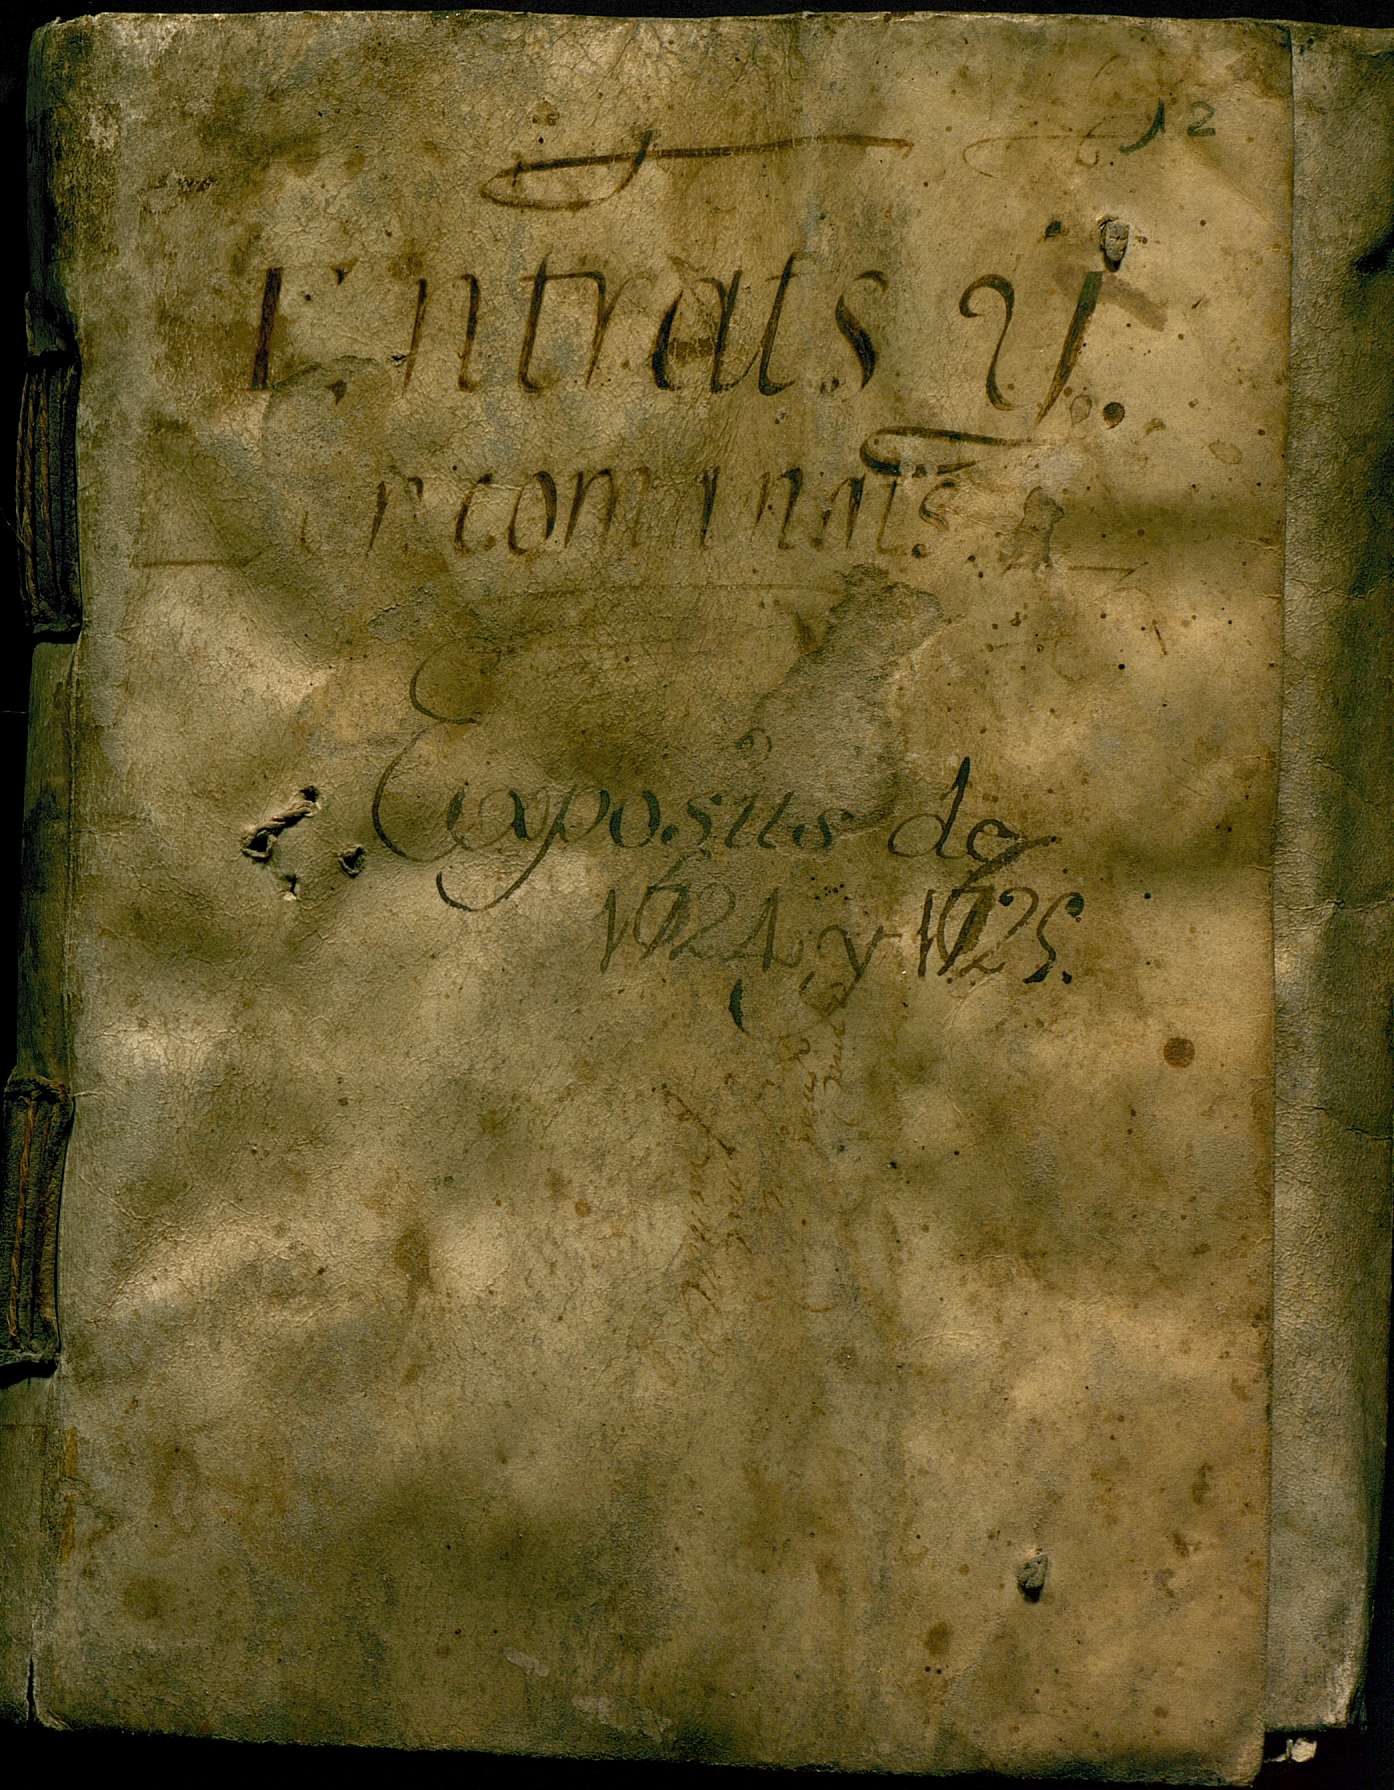 12
Entrats y
encomanats
Exposits de
1624 y 1625.